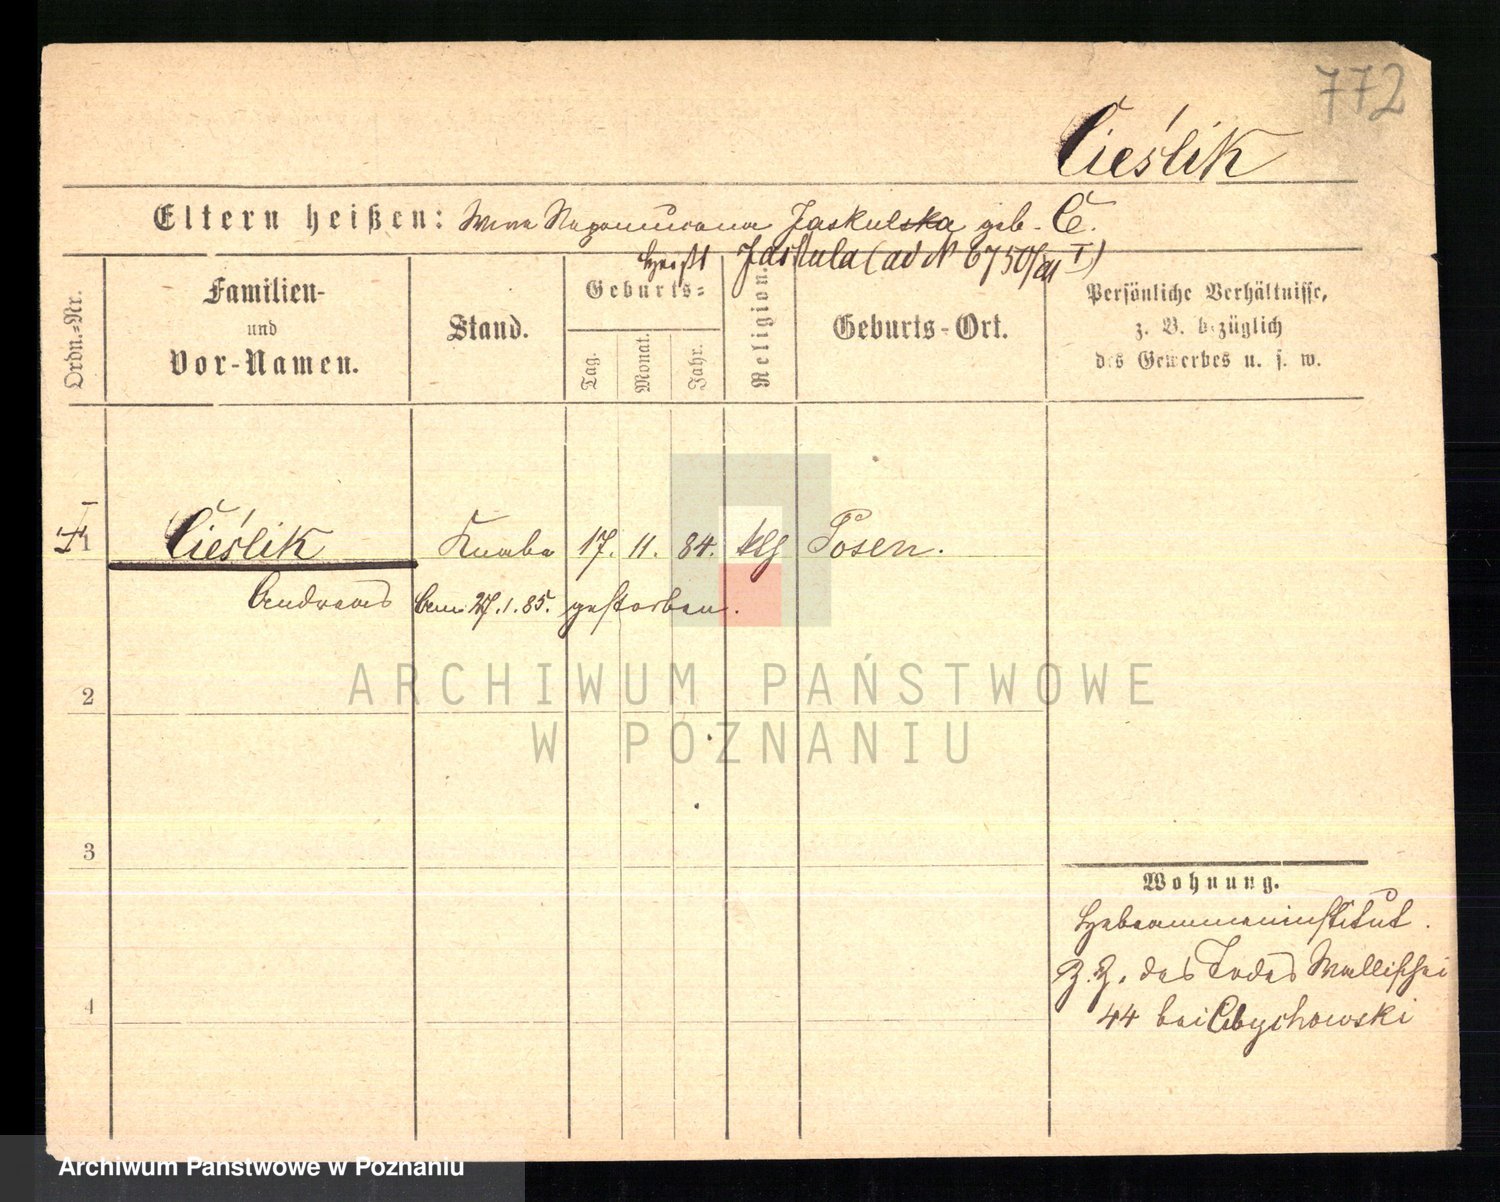 772
Cieślik
Eltern heißen: Wwe Nepomucena Jaskulska geb. C.
heißt Jaskula (ad N 6750/81 I)
Ordn.-Nr.
Familien-
und
Vor-Namen.
Stand.
Geburts-
Tag.
Monat.
Jahr.
Religion.
Geburts-Ort.
Persönliche Verhältnisse,
z. B. bezüglich
des Gewerbes u. s. w.
1 Cieślik Knabe 17. 11. 84. klg Posen.
Andreas am 27.1.85. gestorben.
ARCHIWUM PAŃSTWOWE
W POZNANIU
2
3
Wohnung.
Hebammeninstitut.
z. Z. des Todes Wallischei
4
44 bei Obychowski
Archiwum Państwowe w Poznaniu